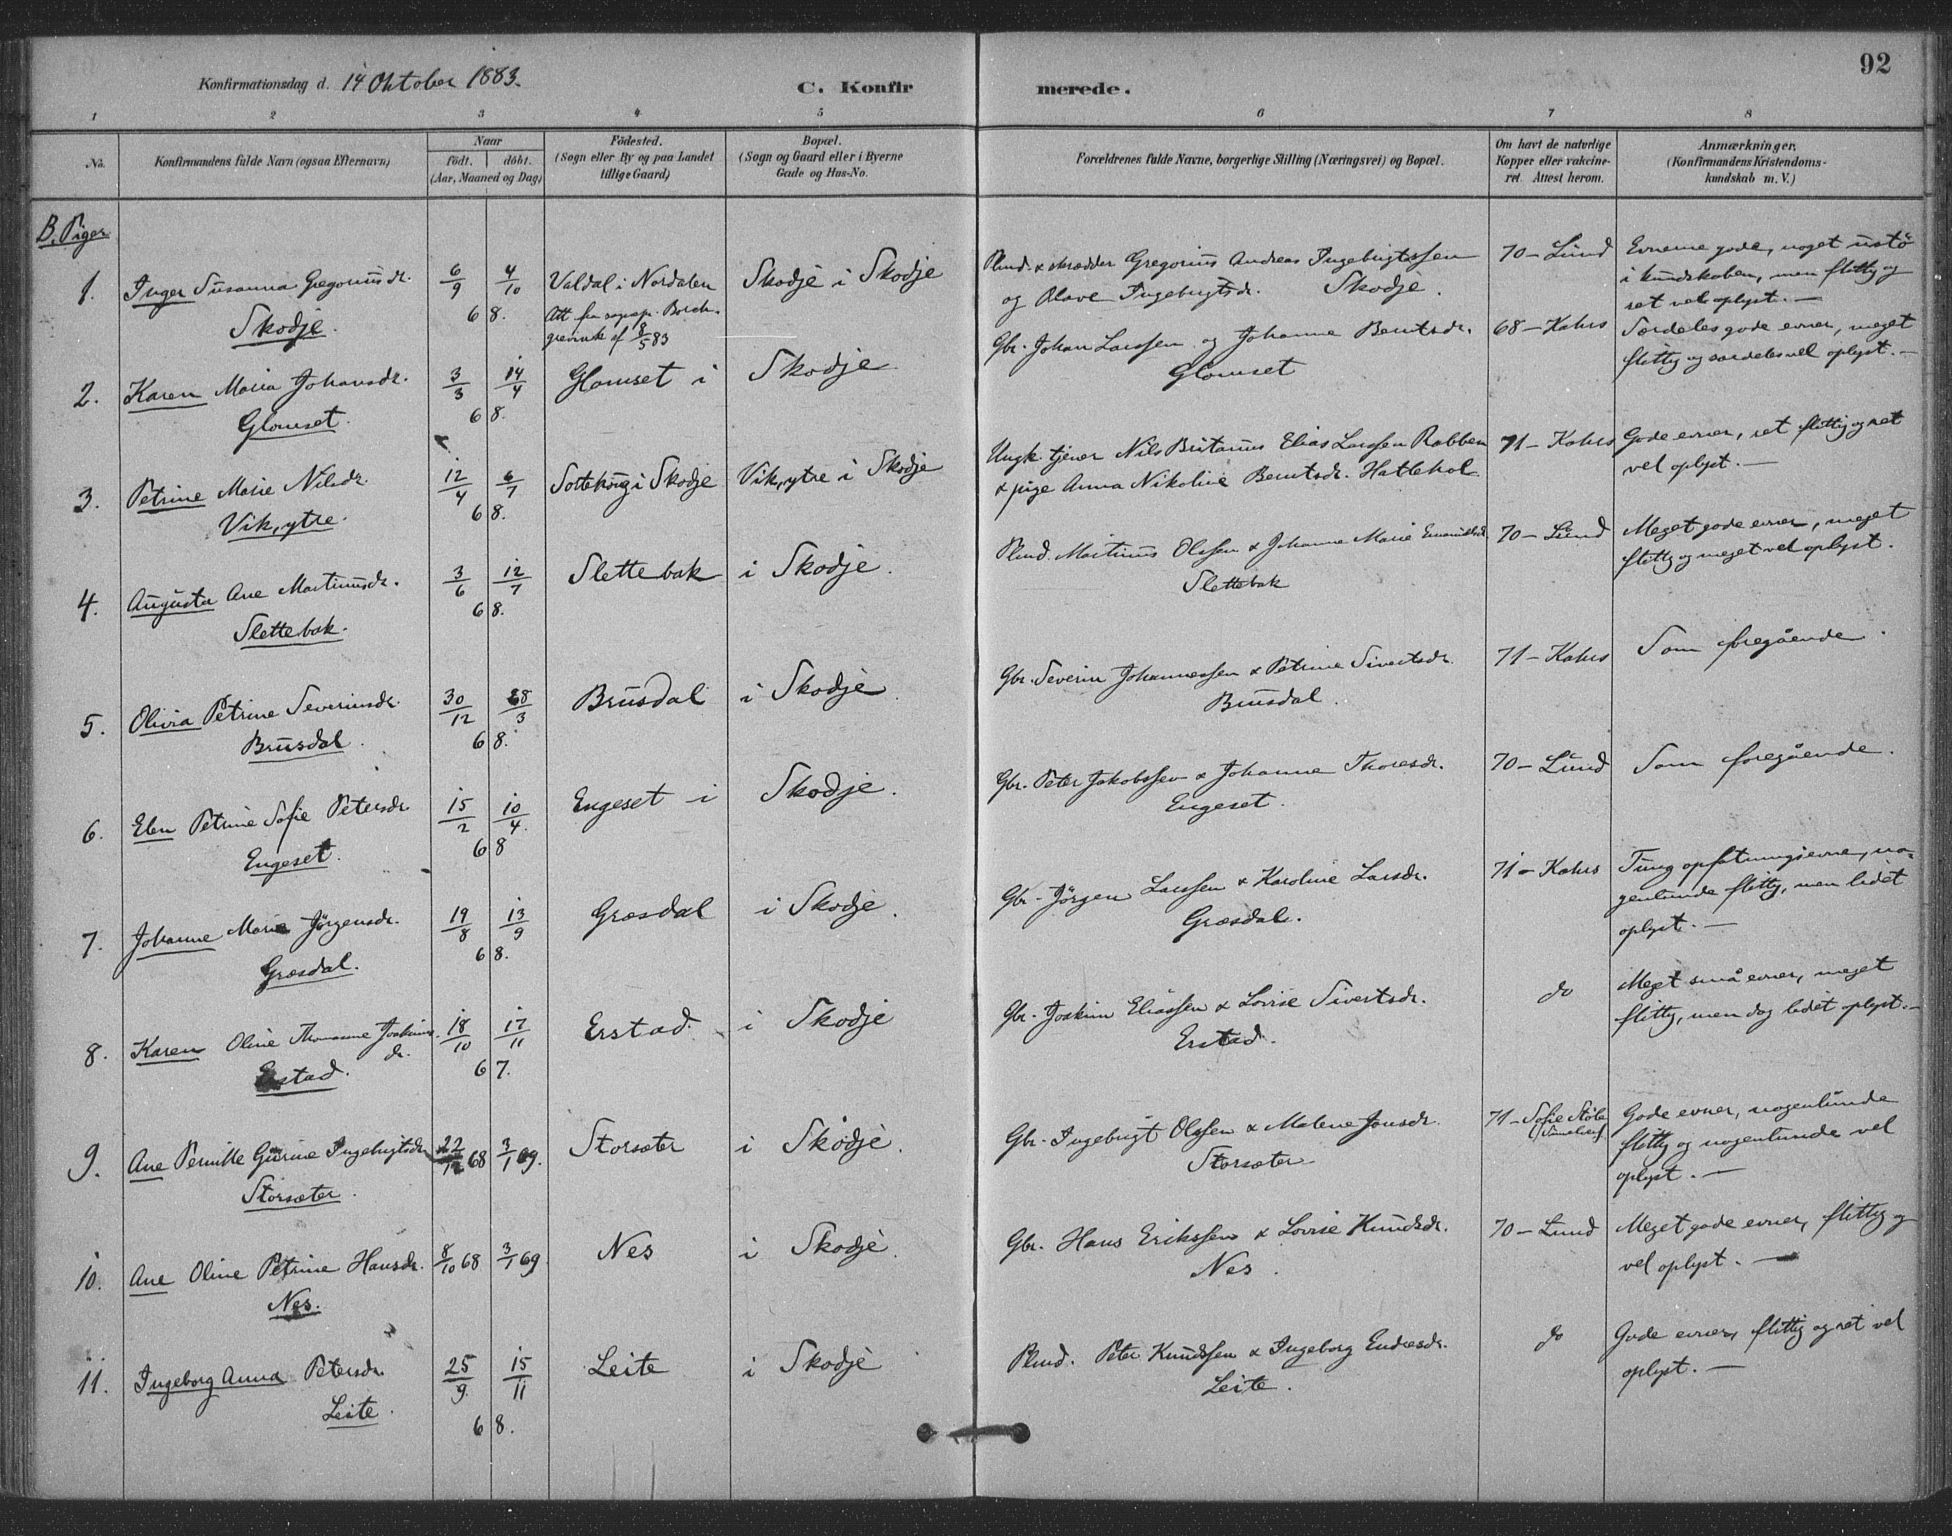 92
Konfirmationsdag d. 14 Oktober 1883.
C. Konfirmerede.
1 2 3 4 5 6 7 8
No. Konfirmandens fulde Navn (ogsaa Efternavn) Naar födt. döbt. (Aar, Maaned og Dag) Födested. (Sogn eller By og paa Landet tillige Gaard) Bopæl. (Sogn og Gaard eller i Byerne Gade og Hus-No. Forældrenes fulde Navne, borgerlige Stilling (Næringsvei) og Bopæl. Om havt de naturlige Kopper eller vakcineret. Attest herom. Anmærkninger. (Konfirmandens Kristendomskundskab m. V.)
B. Piger
1. Inger Susanna Gregoriusdr. 6/9 4/10 Valdal i Nordalen Skodje i Skodje Plmd. & skrædder Gregorius Andreas Ingebrigtssen 70 - Lund Evnerne gode, noget ustö
Skodje. 68. Att fra sognep. Borchgrevink af 8/5 83 og Olave Ingebrigtsdr. Skodje. i kundskaben, men flittig og
ret vel oplyst. —
2. Karen Maria Johansdr. 3/3 14/4 Glomset i Skodje Gbr. Johan Larssen og Johanne Berntsdr. 68 - Kahrs Særdeles gode evner, meget
Glomset. 68. Glomset flittig og særdeles vel oplyst. —
3. Petrine Marie Nilsdr. 12/4 6/7 i Skodje Vik, ytre i Skodje Ungk. tjener Nils Elias Larssen Rabben 71 - Kahrs Gode evner, ret flittig og ret
Vik, ytre. 68. & pige Anna Nikoline Berntsdr. Hatlehol vel oplyst. —
4. Augusta Ane Martinusdr. 3/6 12/7 Slettebak i Skodje. Plmd. Martinus Olssen & Johanne Marie 70 - Lund Meget gode evner, meget
Slettebak. 68. Slettebak flittig og meget vel oplyst.
5. Olivia Petrine Severinsdr. 30/12 28/3 Brusdal i Skodje Gbr. Severin Johannessen & Petrine Sivertsdr. 71 - Kahrs Som foregående.
Brusdal. 68. Brusdal.
6. Elen Petrine Sofie Petersdr 15/2 10/4 Engeset i Skodje. Gbr. Peter Jakobssen & Johanne Thoresdr. 70 - Lund Som foregående.
Engeset. 68 Engeset.
7. Johanne Marie Jörgensdr. 19/8 13/9 Græsdal i Skodje. Gbr. Jörgen Larssen & Karoline Larsdr. 71 - Kahrs Tung opfatningsevne, nogenlunde
Græsdal. 68. Græsdal. flittig, men lidet
oplyst. —
8. Karen Oline Thomasine Joakimsdr. 18/10 17/11 Erstad. i Skodje Gbr. Joakim Eliassen & Lovise Sivertsdr. do Meget små evner, meget
Erstad. 67. Erstad. flittig, men dog lidet oplyst. —
9. Ane Pernille Gurine Ingebrigtsdr 22/12 68 3/1 69. Storsæter i Skodje. Gbr. Ingebrigt Olssen & Malene Jonsdr. 71 - Sofie Gode evner, nogenlunde
Storsæter. Storsæter flittig og nogenlunde vel
oplyst. —
10. Ane Oline Petrine Hansdr. 8/10 68 3/1 69. Nes i Skodje. Gbr. Hans Erikssen & Lovise Knudsdr. 70 - Lund Meget gode evner, flittig og
Nes. Nes. vel oplyst. —
11. Ingeborg Anna Petersdr. 25/9 15/11 Leite i Skodje Plmd. Peter Knudssen & Ingeborg Endresdr. do Gode evner, flittig og ret vel
Leite. 68. Leite. oplyst. —